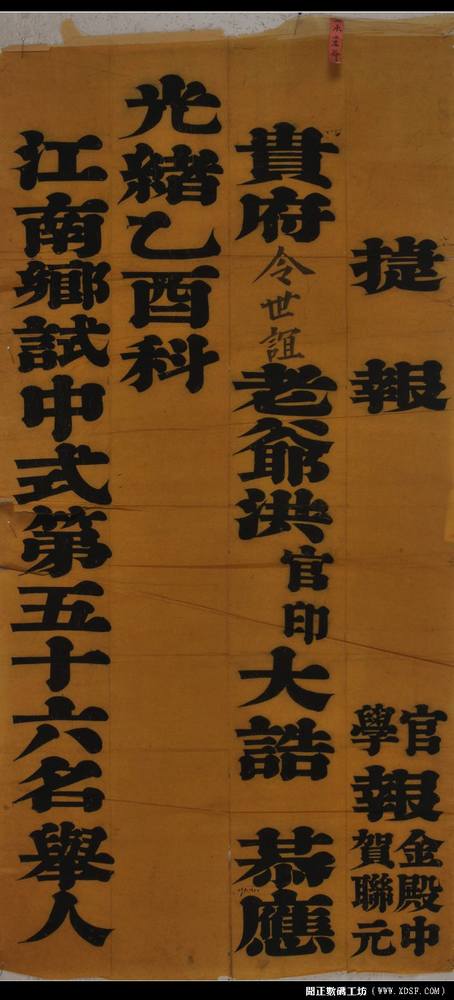 捷報
官學報
金殿中賀聯元
貴府令世誼老爺洪官印大誥恭應
光緒乙酉科
江南鄉試中式第五十六名舉人
閱正數碼工坊(WWW.XDSF.COM)